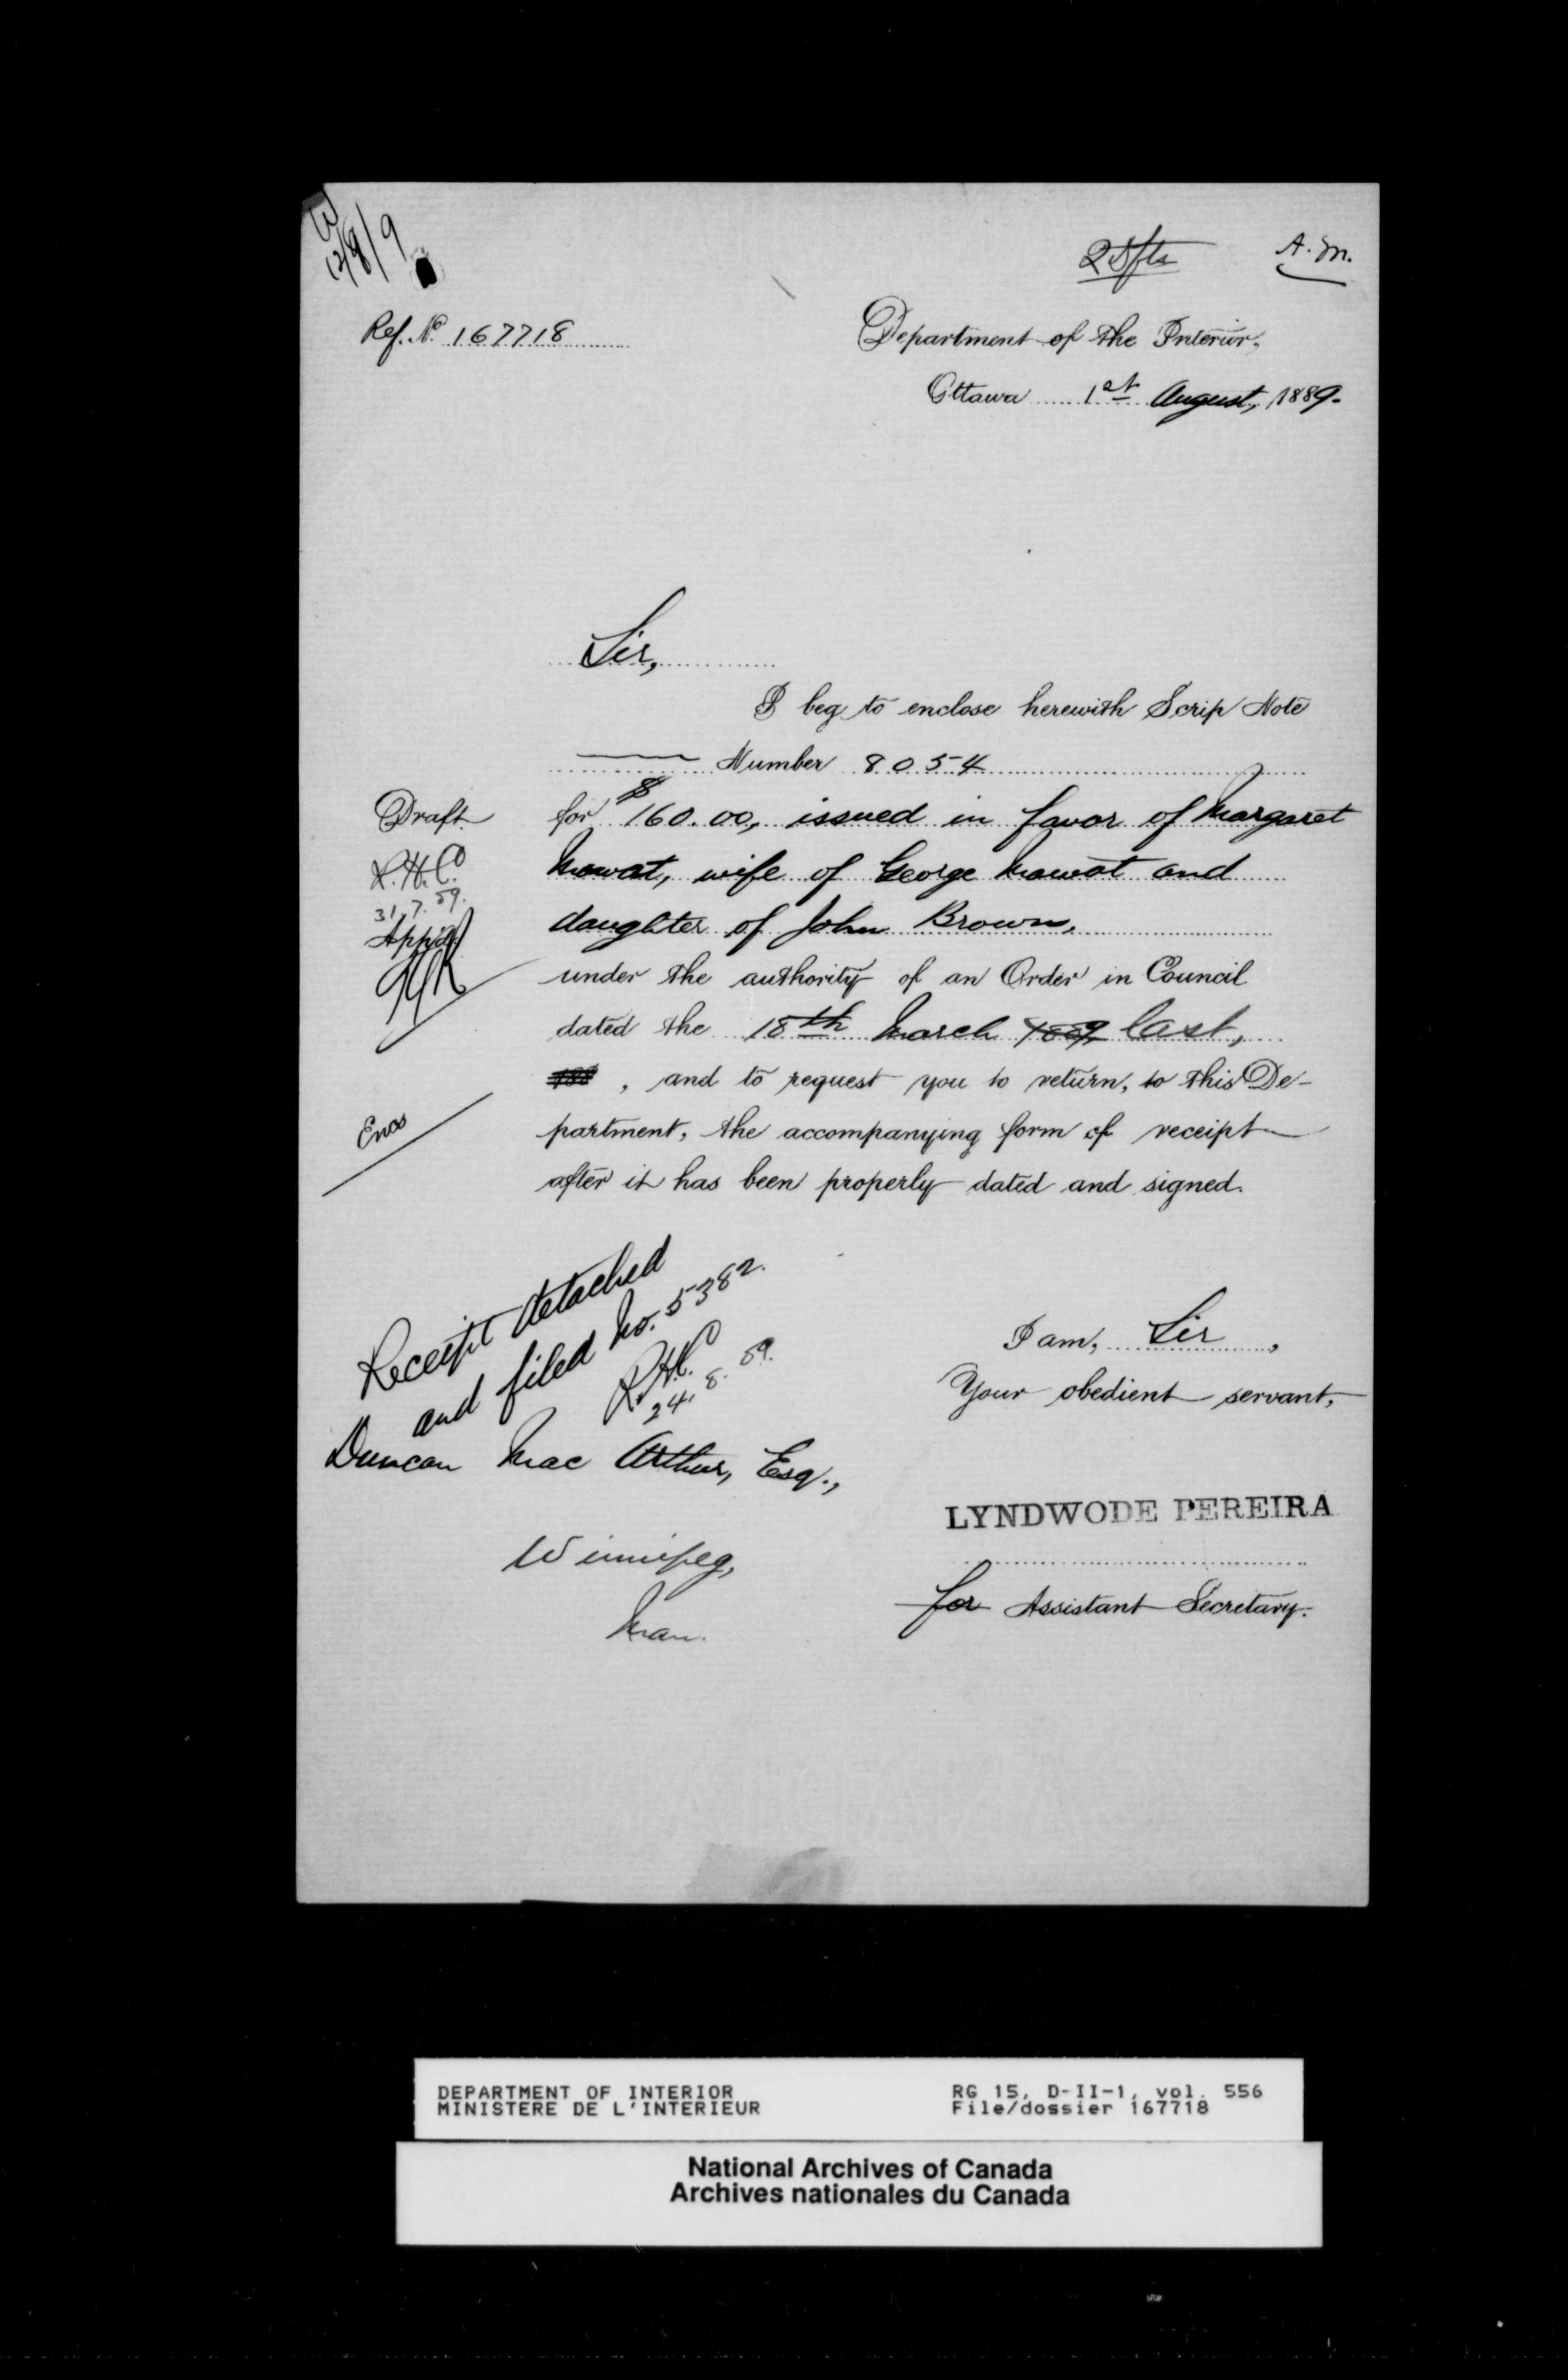 12/8/9
A. M.
Ref. No. 167718
Department of the Interior,
Ottawa 1st August, 1889.
Sir,
I beg to enclose herewith Scrip Note
Number 8054
Draft
for $160.00, issued in favor of Margaret
R.H.C.
31.7.89.
Mowat, wife of George Mowat and
App'd
daughter of John Brown,
under the authority of an Order in Council
dated the 18th March 1889 last,
188 , and to request you to return, to this De-
Encs
partment, the accompanying form of receipt
after it has been properly dated and signed.
Receipt detached
and filed No. 5382.
R.H.C.
24.8.89.
I am, Sir,
Your obedient servant,
Duncan Mac Arthur, Esq.,
Winnipeg,
Man.
LYNDWODE PEREIRA
for Assistant Secretary.
DEPARTMENT OF INTERIOR
MINISTERE DE L'INTERIEUR
RG 15, D-II-1, vol. 556
File/dossier 167718
National Archives of Canada
Archives nationales du Canada